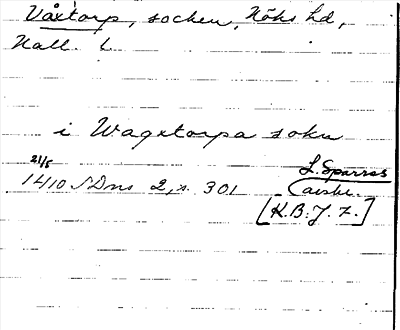 Våxtorp, socken, Höks hd,
Hall. L
i Wagxtorpa sokn
21/5
1410 SDns 2, s. 301
L. Sparres
[K.B. J. 7.]